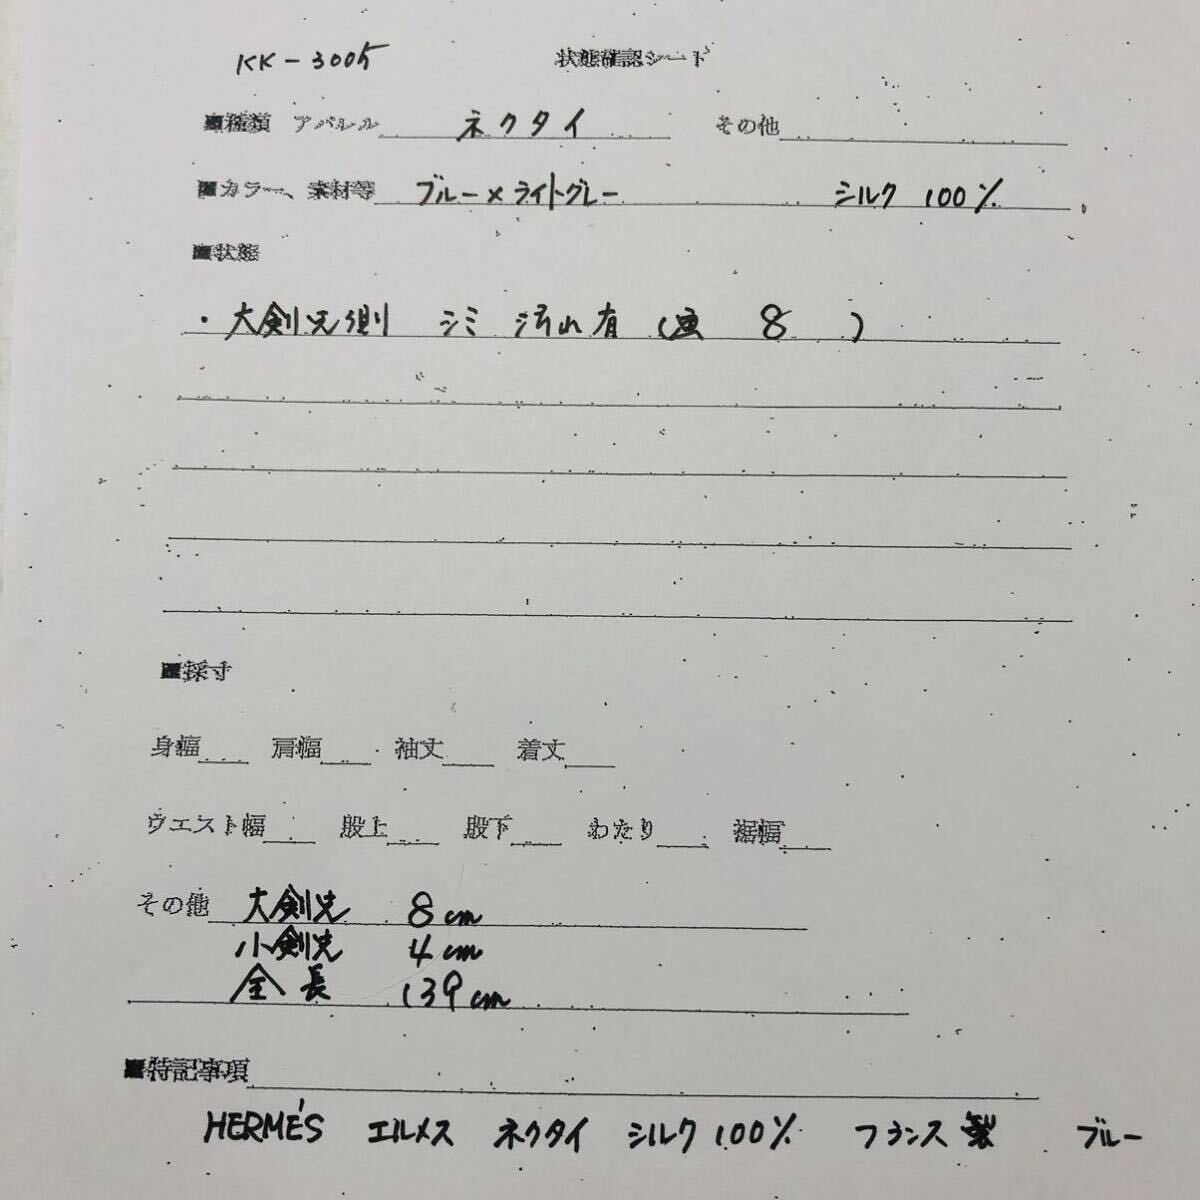 KK-3005 状態確認シート
■種類 アパレル ネクタイ その他
■カラー、素材等 ブルー×ライトグレー シルク 100%
■状態
・大剣先側 シミ 汚れ有 (画 8 )
■採寸
身幅 肩幅 袖丈 着丈
ウエスト幅 股上 股下 わたり 裾幅
その他 大剣先 8cm
小剣先 4cm
全長 139cm
■特記事項
HERMÈS エルメス ネクタイ シルク100% フランス製 ブルー